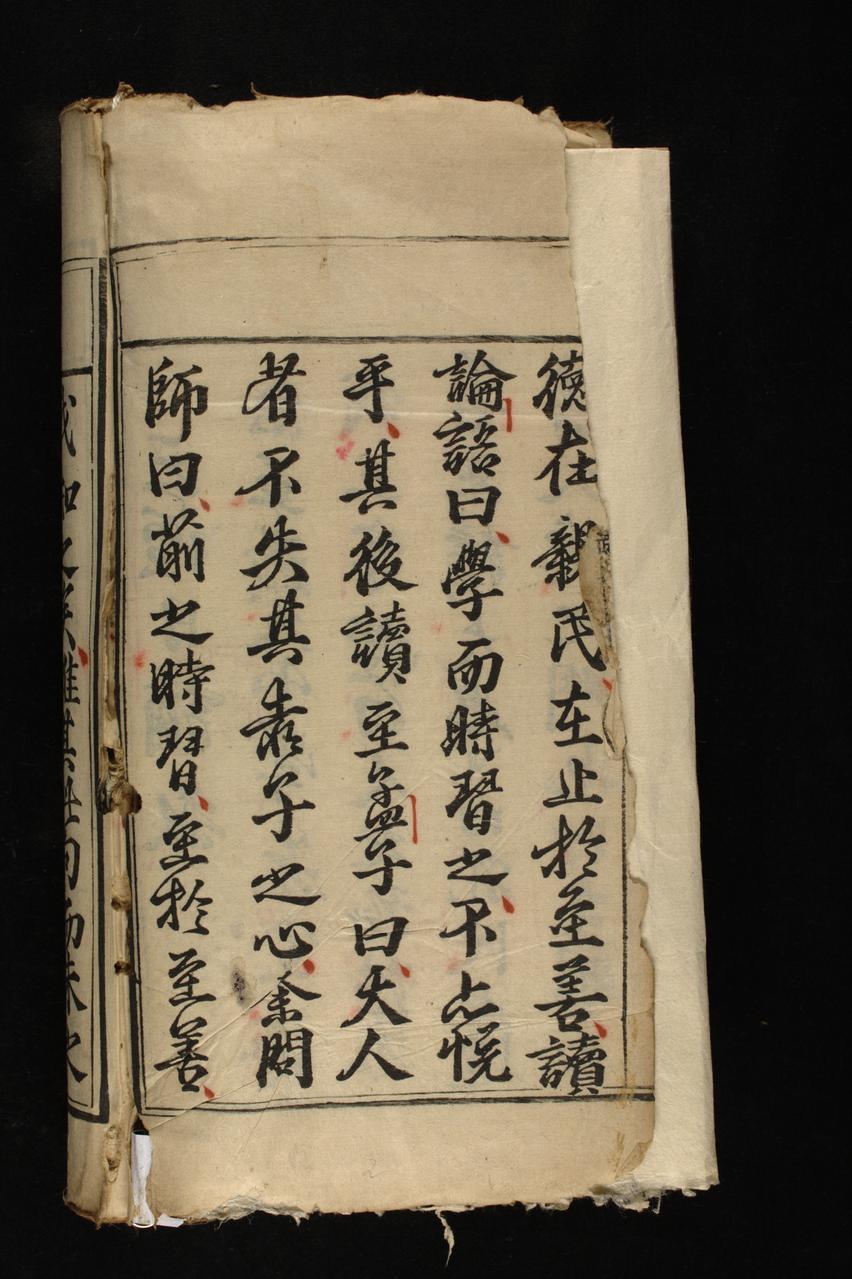 德在親民在止於至善讀
論語曰學而時習之不亦悅
乎其後讀至孟子曰大人
者不失其赤子之心余問
師曰前之時習至於至善